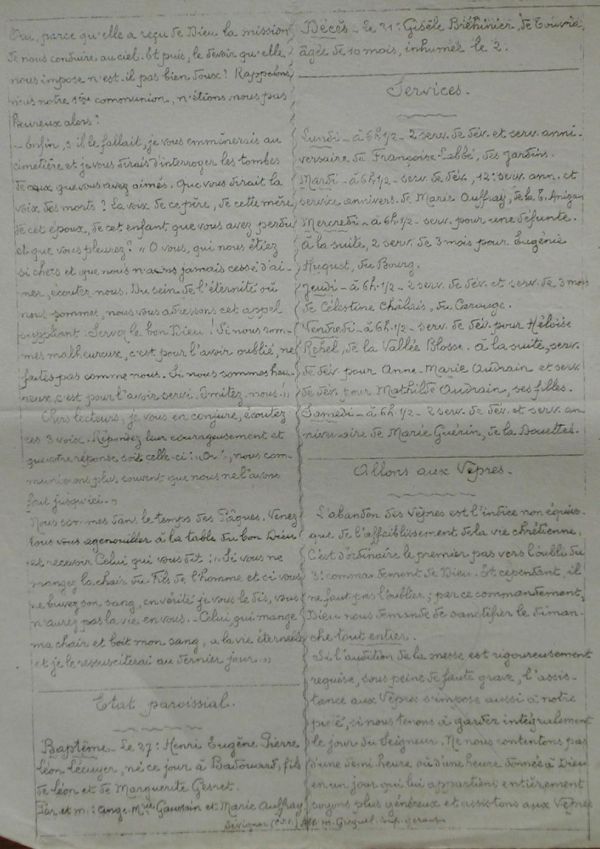 Oui, parce qu'elle a reçu de Dieu la mission
de nous conduire au ciel. Et puis, le devoir qu'elle
nous impose n'est-il pas bien doux? Rappelons
nous notre 1ère communion, n'étions nous pas
heureux alors?
- Enfin, s'il le fallait, je vous emmènerais au
cimetière et je vous dirais d'interroger les tombes
de ceux que vous avez aimés. Que vous dirait la
voix des morts? La voix de ce père, de cette mère
de cet époux, de cet enfant que vous avez perdu
et que vous pleurez? "O vous, qui nous étiez
si chers et que nous n'avons jamais cessé d'ai-
mer, écoutez nous. Du sein de l'éternité où
nous sommes, nous vous adressons cet appel
suppliant. Servez le bon Dieu! Si nous som-
mes malheureux, c'est pour l'avoir oublié, ne
faites pas comme nous. Si nous sommes heu-
reux, c'est pour l'avoir servi. Imitez nous!"
Chers lecteurs, je vous en conjure, écoutez
ces 3 voix. Répondez leur courageusement et
que votre réponse soit celle-ci: "Oui, nous com-
munierons plus souvent que nous ne l'avons
fait jusqu'ici."
Nous sommes dans le temps des Pâques. Venez
tous vous agenouiller à la table du bon Dieu
et recevoir Celui qui vous dit: "Si vous ne
mangez la chair du Fils de l'homme et si vous
ne buvez son sang, en vérité je vous le dis, vous
n'aurez pas la vie en vous. Celui qui mange
ma chair et boit mon sang, a la vie éternelle
et je le ressusciterai au dernier jour."
Etat paroissial.
Baptême - Le 27: Henri Eugène Pierre
Léon Lécuyer, né ce jour à Badouard, fils
de Léon et de Marguerite Gesret.
Par. et m.: Ange-Mie Gauvain et Marie Auffray
Décès - Le 31: Gisèle Biéhinier, de
âgée de 10 mois, inhumée le 2.
Services.
Lundi - à 6h 1/2 - 2 serv. de dév. et serv. anni-
versaire de Françoise Labbé, des Jardins.
Mardi - à 6h 1/2 - serv. de dév., 12e serv. ann. et
service annivers. de Marie Auffray, de la
Mercredi - à 6h 1/2 - serv. pour une défunte.
à la suite, 2 serv. de 3 mois pour Eugénie
August, du Bourg.
Jeudi - à 6h 1/2 - 2 serv. de dév. et serv. de 3 mois
de Célestine Châlais, du Carouge.
Vendredi - à 6h 1/2 - serv. de dév. pour Héloïse
Rehel, de la Vallée Blosse. à la suite, serv.
de dév. pour Anne-Marie Audrain et serv.
de dév. pour Mathilde Audrain, ses filles.
Samedi - à 6h 1/2 - 2 serv. de dév. et serv. an
niversaire de Marie Guérin, de la Douettes.
Allons aux Vêpres.
L'abandon des Vêpres est l'indice non équivo-
que de l'affaiblissement de la vie chrétienne.
C'est d'ordinaire le premier pas vers l'oubli du
3e commandement de Dieu. Et cependant, il
ne faut pas l'oublier; par ce commandement,
Dieu nous demande de sanctifier le diman-
che tout entier.
Si l'audition de la messe est rigoureusement
requise, sous peine de faute grave, l'assis-
tance aux Vêpres s'impose aussi à notre
piété, si nous tenons à garder intégralement
le jour du Seigneur. Ne nous contentons pas
d'une demi heure ou d'une heure donnée à Dieu
en un jour qui lui appartient entièrement
soyons plus généreux et assistons aux Vêpres
Sévignac (C.d.N.)